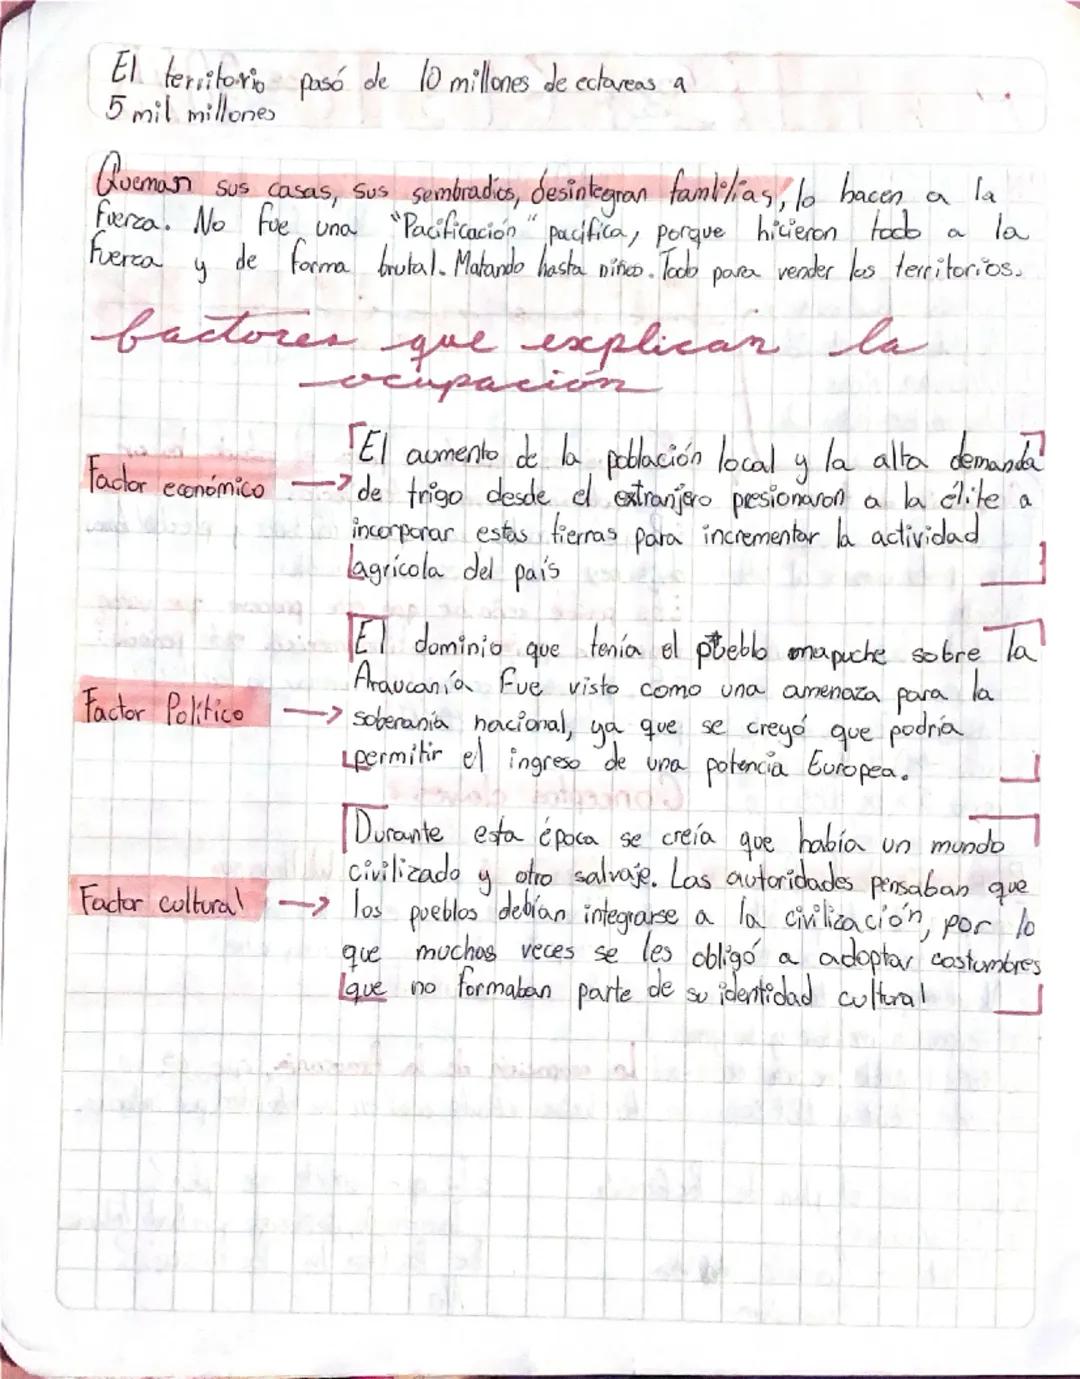 El territorio pasó de 10 millones de ectareas a
5 mil millones
Queman sus casas, sus sembradios, desintegran famblilias, lo hacen a la
fuerza. No fue una "Pacificación" pacifica, porque hicieron todo a la
fuerza y de forma brutal. Matando hasta niños. Todo para vender los territorios.
factores que explican la
ocupación
Factor económico →
El aumento de la población local y la alta demanda
de trigo desde el extranjero presionaron a la élite a
incorporar estas tierras para incrementar la actividad
agrícola del país
Factor Político →
El dominio que tenía el pueblo mapuche sobre la
Araucanía fue visto como una amenaza para la
soberanía nacional, ya que se creyó que podría
permitir el ingreso de una potencia Europea.
Factor cultural →
Durante esta época se creía que había un mundo
civilizado y otro salvaje. Las autoridades pensaban que
los pueblos debían integrarse a la civilización, por lo
que muchas veces se les obligó a adoptar costumbres
que no formaban parte de su identidad cultural